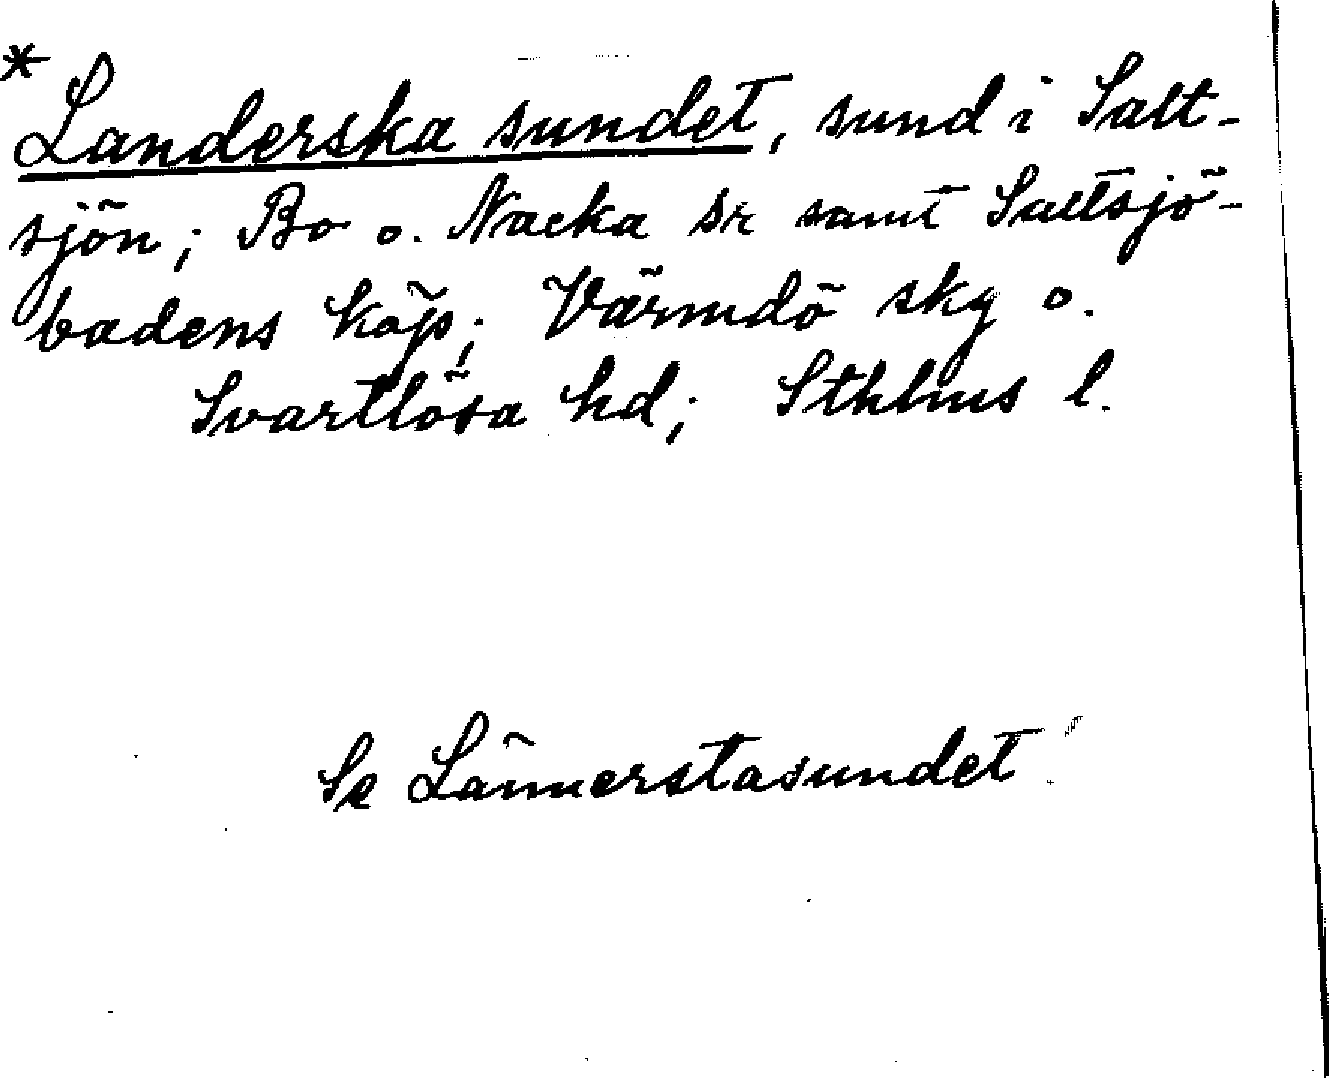 * Landerska sundet, sund i Salt-
sjön; Bo o. Nacka sr samt Saltsjö-
badens köp; Värmdö skg o.
Svartlösa hd; Sthlms l.
Se Lännerstasundet